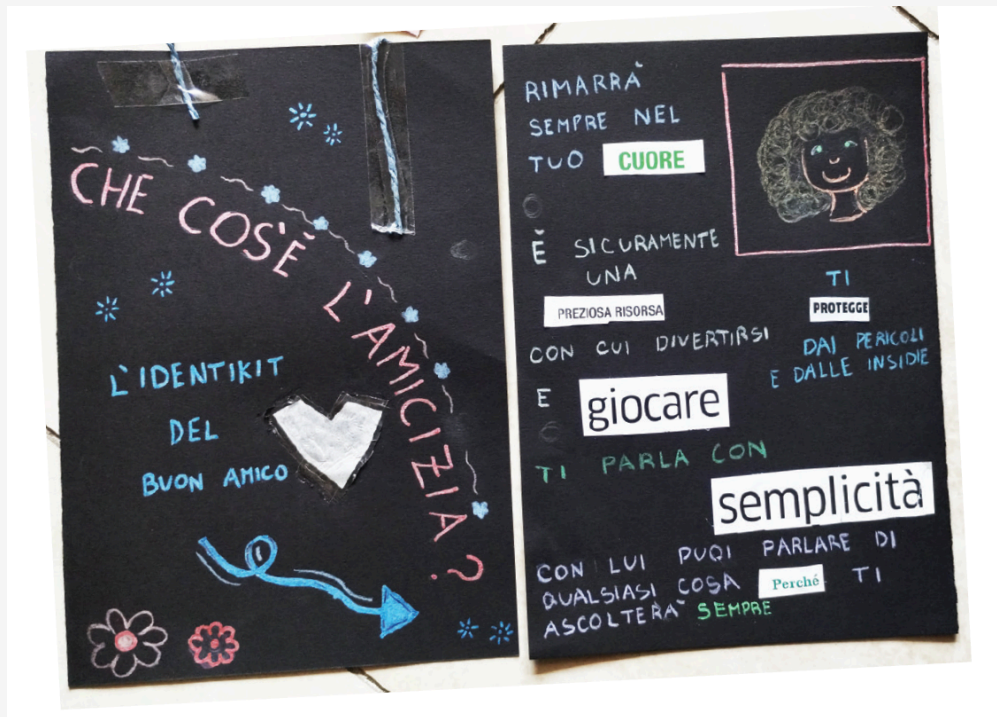 CHE COS'È L'AMICIZIA?
L'IDENTIKIT
DEL
BUON AMICO
RIMARRÀ
SEMPRE NEL
TUO CUORE
È SICURAMENTE
UNA
PREZIOSA RISORSA
CON CUI DIVERTIRSI
E giocare
TI
PROTEGGE
DAI PERICOLI
E DALLE INSIDIE
TI PARLA CON
semplicità
CON LUI PUOI PARLARE DI
QUALSIASI COSA Perché TI
ASCOLTERÀ SEMPRE